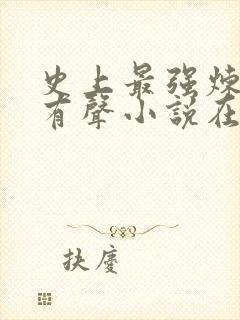 史上最强炼
有聲小說在
扶麐